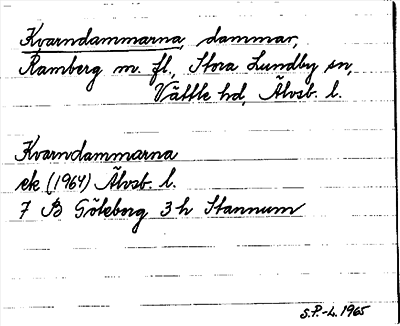 Kvarndammarna, dammar,
Ramberg m. fl., Stora Lundby sn,
Vättle hd, Älvsb. l.
Kvarndammarna
ek (1964) Älvsb. l.
7 B Göteborg 3 h Stannum
S.P.-L. 1965